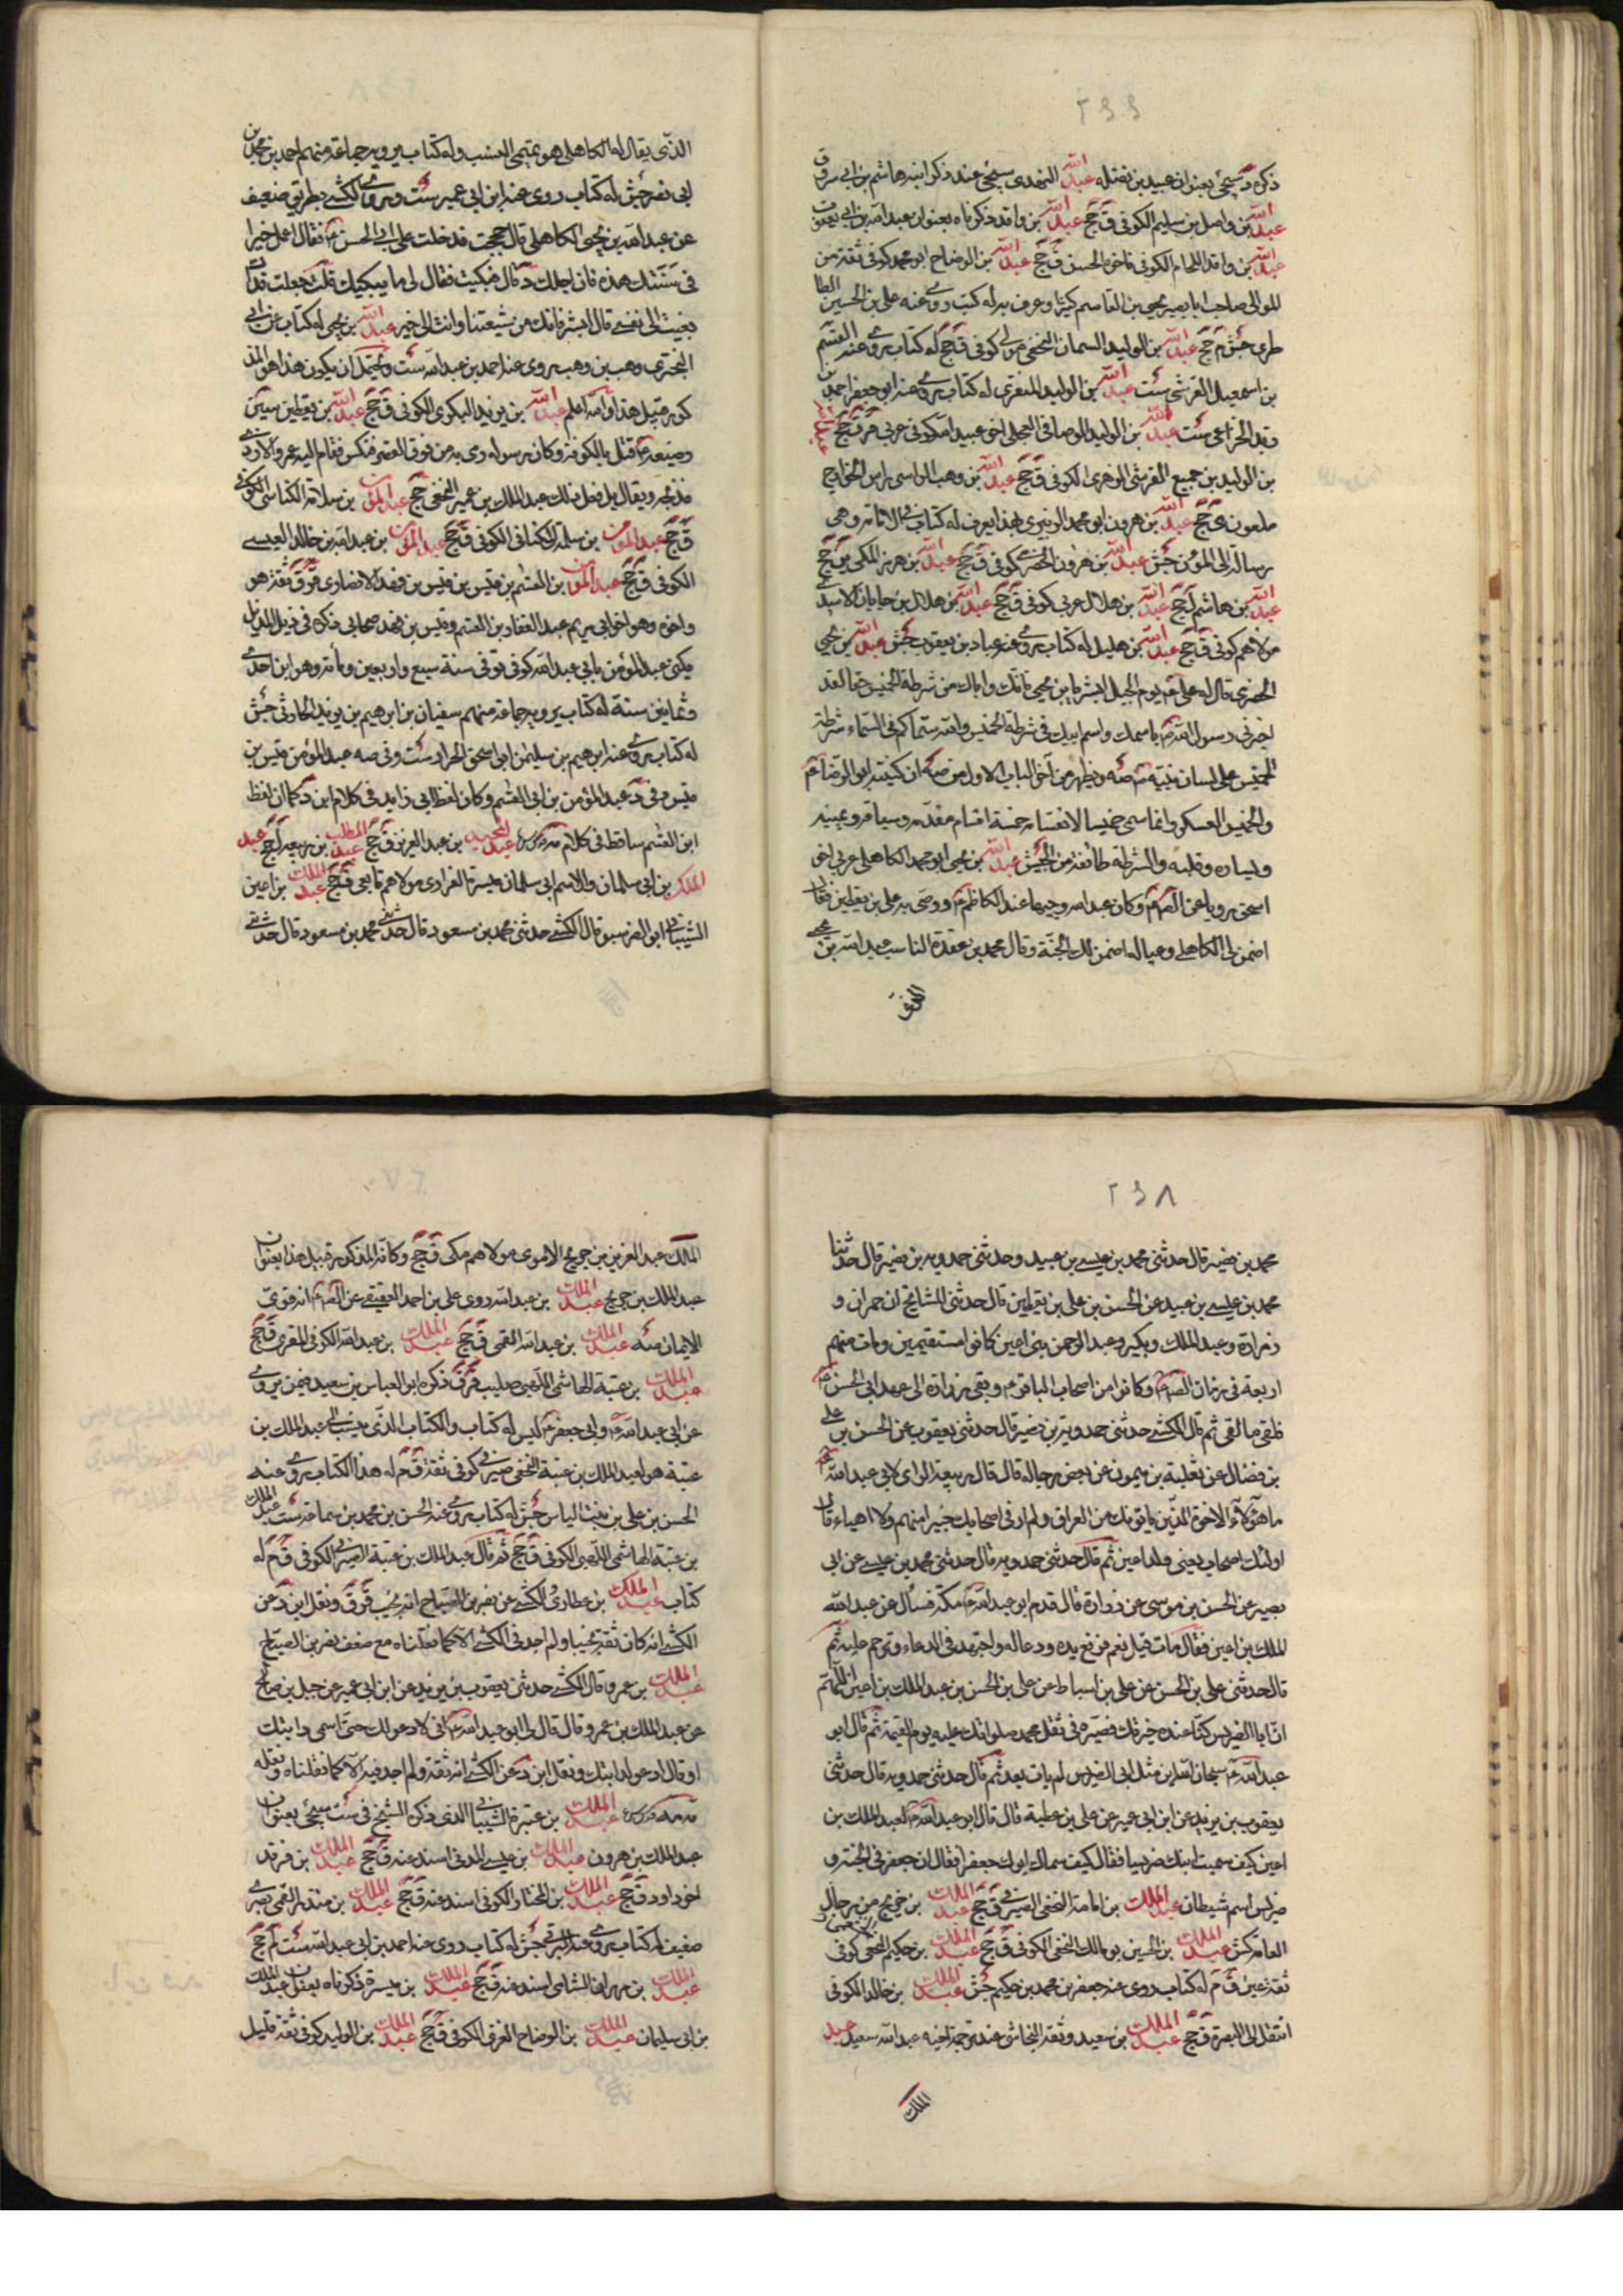 ٢٤٤
ذكره د سيجئ بعنوان عبيد بن نضلة عبد الله النهدى سيجئ عند ذكر ابنه هاشم بن ابى
عبد الله بن واصل بن سليم الكوفى ق جخ عبد الله بن واقد ذكرناه بعنوان عبد الله بن ابى يعفور
عبد الله بن واقد اللحام الكوفى تاخوه الحسن ق جخ عبد الله بن الوضاح ابو محمد كوفى ثقة من
الموالى صاحب ابا بصير يحيى بن القاسم كثيرا وعرف به له كتب روى عنه على بن الحسين الطا
طرى جش م جخ عبد الله بن الوليد السمان النخعى مولى كوفى ق جخ له كتاب روى عنه القسم
بن اسمعيل القرشى ست عبد الله بن الوليد المنقرى له كتاب روى عنه ابو جعفر احمد بن
الخزاعى ست عبد الله بن الوليد الوصافى العجلى اخو عبيد الله كوفى عربى ق جخ
بن الوليد بن جميع القرشى الزهرى الكوفى ق جخ عبد الله بن وهب الراسبى راس الخوارج
ملعون ى جخ عبد الله بن هرون ابو محمد الزبيرى بهذا يعرف له كتاب فى الامامة وهى
رسالة الى المامون جش عبد الله بن هرون الحضرمى كوفى ق جخ عبد الله بن هرمز المكى ين جخ
عبد الله بن هاشم ل جخ عبد الله بن هلال عربى كوفى ق جخ عبد الله بن هلال بن جابان الاسدى
مولاهم كوفى ق جخ عبد الله بن هليل له كتاب روى عنه عباد بن يعقوب جش عبد الله بن يحيى
الحضرمى قال له على ع يوم الجمل ابشر يا بن يحيى فانك واباك من شرطة الخميس حقا لقد
اخبرنى رسول الله باسمك واسم ابيك فى شرطة الخميس والله سماكم فى السماء شرطة
الخميس على لسان نبيه صه ويظهر من آخر الباب الاول من صه ان كنيته ابو الرضا
والخميس العسكر وانما سمى خميسا لانقسامه خمسة اقسام مقدمه وسياقه ويمينه
ويساره وقلبه والشرطة طائفة من الجيش عبد الله بن يحيى ابو محمد الكاهلى عربى اخو
اسحق رويا عن وكان عبد الله وجيها عند الكاظم ووصى به على بن يقطين فقال
اضمن لى الكاهلى وعياله اضمن لك الجنة وقال محمد بن عقدة الناسب عبد الله بن يحيى
الذى يقال له الكاهلى هو تميمى النسب وله كتاب يرويه جماعة منهم احمد بن محمد بن
ابى نصر جش له كتاب روى عنه ابن ابى عمير ست وروى الكشى بطريق ضعيف
عن عبد الله بن يحيى الكاهلى قال حججت فدخلت على ابى الحسن فقال اعمل خيرا
فى سنتك هذه فان اجلك قال فبكيت فقال لى ما يبكيك قلت جعلت فداك
نعيت الى نفسى قال ابشر فانك من شيعتنا وانت الى خير عبد الله بن يحيى له كتاب عن ابى
البخترى وهب بن وهب روى عنه احمد بن عبد الله ست ويحتمل ان يكون هذا هو المذ
كور قبيل هذا والله اعلم عبد الله بن يزيد البكرى الكوفى ق جخ عبد الله بن يقطين سين
رضيعه قتل بالكوفة وكان رسوله رمى به من فوق القصر فتكسر فقام اليه عمرو الازدى
فذبحه ويقال بل فعل ذلك عبد الملك بن عمير اللخمى جخ عبد المؤمن بن سلامة الكناسى الكوفى
ق جخ عبد المؤمن بن سلمة الكنانى الكوفى ق جخ عبد المؤمن بن عبد الله بن خالد العبسى
الكوفى ق جخ عبد المؤمن بن القسم بن قيس بن قيس بن فهد الانصارى ق ثقة هو
واخوه وهو اخو ابى مريم عبد الغفار بن القسم وقيس بن فهد صحابى ذكره فى ذيل المذيل
يكنى عبد المؤمن بابى عبد الله كوفى توفى سنة سبع واربعين ومائة وهو ابن احدى
وثمانين سنة له كتاب يرويه جماعة منهم سفيان بن ابرهيم بن يزيد الحارثى جش
له كتاب روى عنه ابرهيم بن سليمن ابو اسحق الخزاز ست وفى صه عبد المؤمن قيس بن
قيس وفى د عبد المؤمن بن ابى القسم وكان لفظ ابى زايد فى كلام ابن د كما ان لفظ
ابن القسم ساقط فى كلام عبد المجيد بن عبد العزيز ق جخ عبد المطلب بن ربيعه ل جخ عبد
الملك بن ابى سلمان والاسم ابى سلمان ميسرة الفزارى مولاهم تابعى ق جخ عبد الملك بن اعين
الشيبانى ابو الضرس ق قال الكشى حدثنى محمد بن مسعود قال حدثنى محمد بن مسعود قال حدثنى
٢٤٨
محمد بن نصير قال حدثنى محمد بن عيسى بن عبيد وحدثنى حمدويه بن نصير قال حدثنا
محمد بن عيسى بن عبيد عن الحسن بن على بن يقطين قال حدثنى المشايخ ان حمران و
زرارة وعبد الملك وبكير وعبد الرحمن بنى اعين كانوا مستقيمين ومات منهم
اربعة فى زمان وكانوا من اصحاب الباقر وبقى زرارة الى عهد ابى الحسن
فلقى ما لقى ثم قال الكشى حدثنى حمدويه بن نصير قال حدثنى يعقوب عن الحسن بن على
بن فضال عن ثعلبة بن ميمون عن بعض رجاله قال قال ربيعة الراى لابى عبد الله
ما هؤلاء الاخوة الذين ياتونك من العراق ولم ار فى اصحابك خيرا منهم ولا اهياء قال
اولئك اصحاب ابى يعنى ولد اعين ثم قال حدثنى حمدويه قال حدثنى محمد بن عيسى عن ابى
نصير عن الحسن بن موسى عن زرارة قال قدم ابو عبد الله مكة فسأل عن عبد الله
الملك بن اعين فقال مات قيل نعم فرفع يده ودعا له واجتهد فى الدعاء وترحم عليه ثم
قال حدثنى على بن الحسن عن على بن اسباط عن على بن الحسن بن عبد الملك بن اعين اللهم
ان ابا الضريس كنا عنده خيرتك فصيره فى ثقل محمد صلواتك عليه يوم القيمة ثم قال ابو
عبد الله سبحان الله اين مثل ابى الضريس لم يات بعد ثم قال حدثنى حمدويه قال حدثنى
يعقوب بن يزيد عن ابن ابى عمير عن على بن عطية قال قال ابو عبد الله لعبد الملك بن
اعين كيف سميت ابنك ضريسا فقال كيف سماك ابوك جعفرا فقال ان جعفر فى الجنة و
ضريس اسم شيطان عبد الملك بن امامة النخعى الصيرفى ق جخ عبد الملك بن جريح من رجال
العامة كش عبد الملك بن الحسين بو مالك النخعى الكوفى ق جخ عبد الملك بن حكيم النخعى كوفى
ثقة عين ق م له كتاب روى عنه جعفر بن محمد بن حكيم جش عبد الملك بن خالد الكوفى
انتقل الى البصرة ق جخ عبد الملك بن سعيد وثقه النجاشى عند ترجمة اخيه عبد الله سعيد عبد
الملك
الملك عبد العزيز بن جريح الاموى مولاهم مكى ق جخ وكانه المذكور قبيل هذا بعنوان
عبد الملك بن جريح عبد الملك بن عبد الله روى على بن احمد العقيقى عن انه قوى
الايمان صه عبد الملك بن عبد الله القمى ق جخ عبد الملك بن عبد الله الكوفى المقرى ق جخ
عبد الملك بن عتبة الهاشمى اللهبى صليب ق ذكره ابو العباس بن سعيد فيمن روى
عن ابى عبد الله وابى جعفر ليس له كتاب والكتاب الذى ينسب الى عبد الملك بن
عتبة هو لعبد الملك بن عتبة النخعى صيرفى كوفى ثقة ق م له هذا الكتاب روى عنه
الحسن بن على بن بنت الياس جش له كتاب روى عنه الحسن بن محمد بن سماعة ست عبد الملك
بن عتبة الهاشمى اللهبى الكوفى ق جخ ثم قال عبد الملك بن عتبة الصيرفى الكوفى ق م له
كتاب عبد الملك بن عطا روى الكشى عن نصر بن الصباح انه نجيب ق ونقل ابن د عن
الكشى انه كان ثقة نجيبا ولم اجد فى الكشى الا كما نقلناه مع ضعف نصر بن الصباح
عبد الملك بن عمرو قال الكشى حدثنى يعقوب بن يزيد عن ابن ابى عمير عن جميل بن صالح
عن عبد الملك بن عمرو قال قال لى ابو عبد الله انى لادعو لك حتى اسمى دابتك
او قال ادعو لدابتك ونقل ابن د عن الكشى انه ثقة ولم اجد فيه الا كما نقلناه ونقله
عبد الملك بن عنترة الشيبانى الذى ذكره الشيخ فى ست سيجئ بعنوان
عبد الملك بن هرون عبد الملك بن عيسى المدنى اسند عنه ق جخ عبد الملك بن فرقد
اخو داود ق جخ عبد الملك بن المختار الكوفى اسند عنه ق جخ عبد الملك بن منذر القمى بصرى
ضعيف له كتاب روى عنه البرقى جش له كتاب روى عنه احمد بن ابى عبد الله ست لم جخ
عبد الملك بن مهران الشامى اسند عنه ق جخ عبد الملك بن ميسرة ذكرناه بعنوان عبد الملك
بن ابى سليمان عبد الملك بن الوضاح الكوفى ق جخ عبد الملك بن الوليد كوفى ثقة قليل